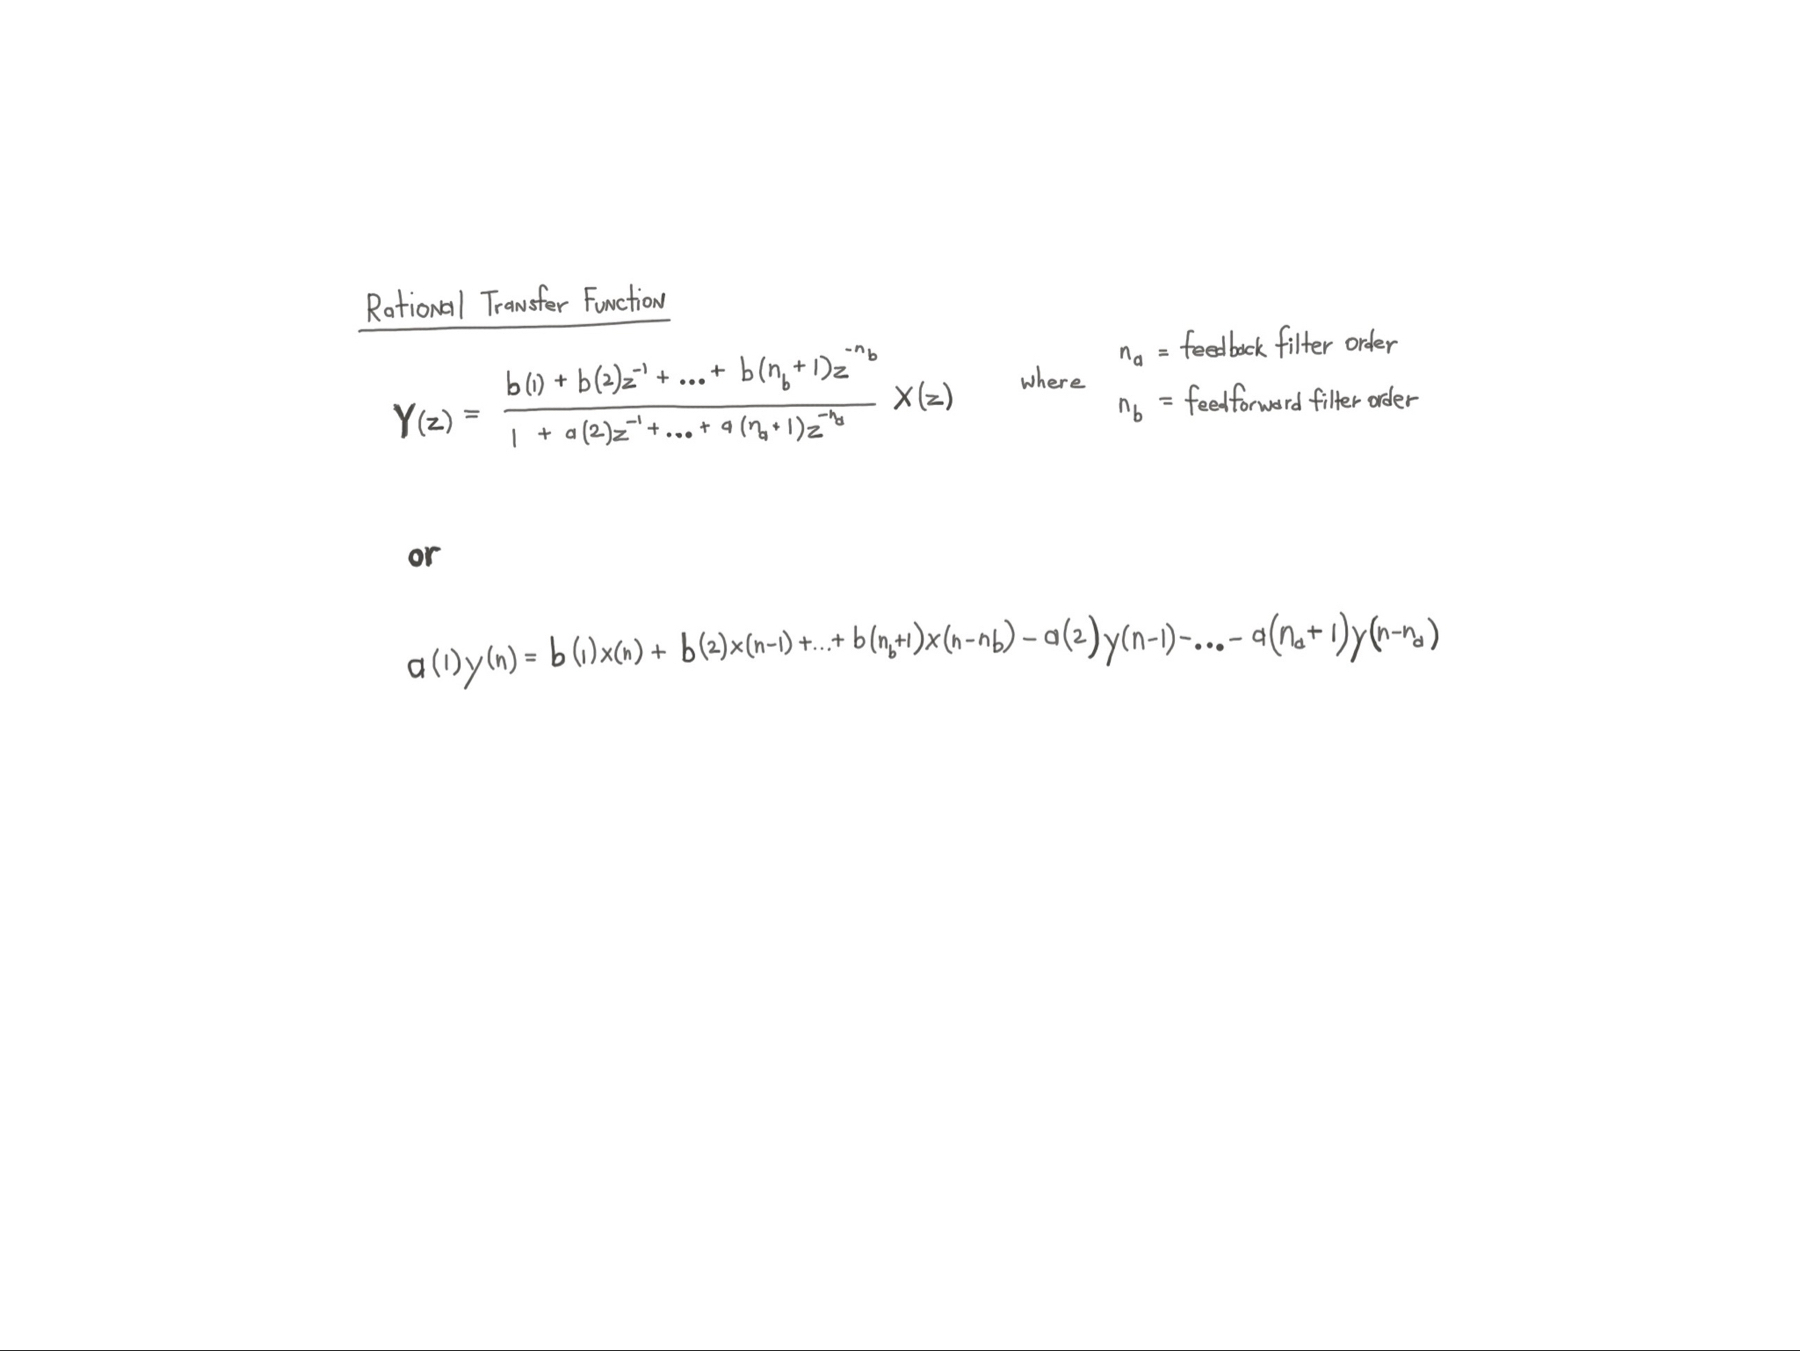 Rational Transfer Function
Y(z) = \frac{b(1) + b(2)z^{-1} + ... + b(n_b+1)z^{-n_b}}{1 + a(2)z^{-1} + ... + a(n_a+1)z^{-n_a}} X(z) where n_a = feedback filter order
n_b = feedforward filter order
or
a(1)y(n) = b(1)x(n) + b(2)x(n-1) + ... + b(n_b+1)x(n-nb) - a(2)y(n-1) - ... - a(n_a+1)y(n-n_a)